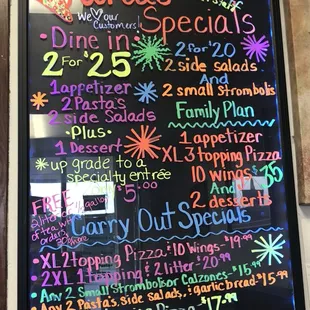 We our
Customers!
Specials
Dine in:
2 For $25
1 appetizer
2 Pasta's
2 side Salads
•Plus•
1 Dessert
*up grade to a
specialty entrée
$5.00
2 for $20
2 side salads
And
2 small Strombolis
Family Plan
1 appetizer
XL 3 topping Pizza
10 Wings
And
2 desserts
FREE
2 liter
of tea w/
orders
Carry Out Specials
•XL 2 topping Pizza & 10 Wings - $19.99
•2 XL 1 topping & 2 liter $20.99
•Any 2 Small Stromboli or Calzones - $15.99
•Any 2 Pasta's, side Salads, & garlic bread - $15.99
$17.99